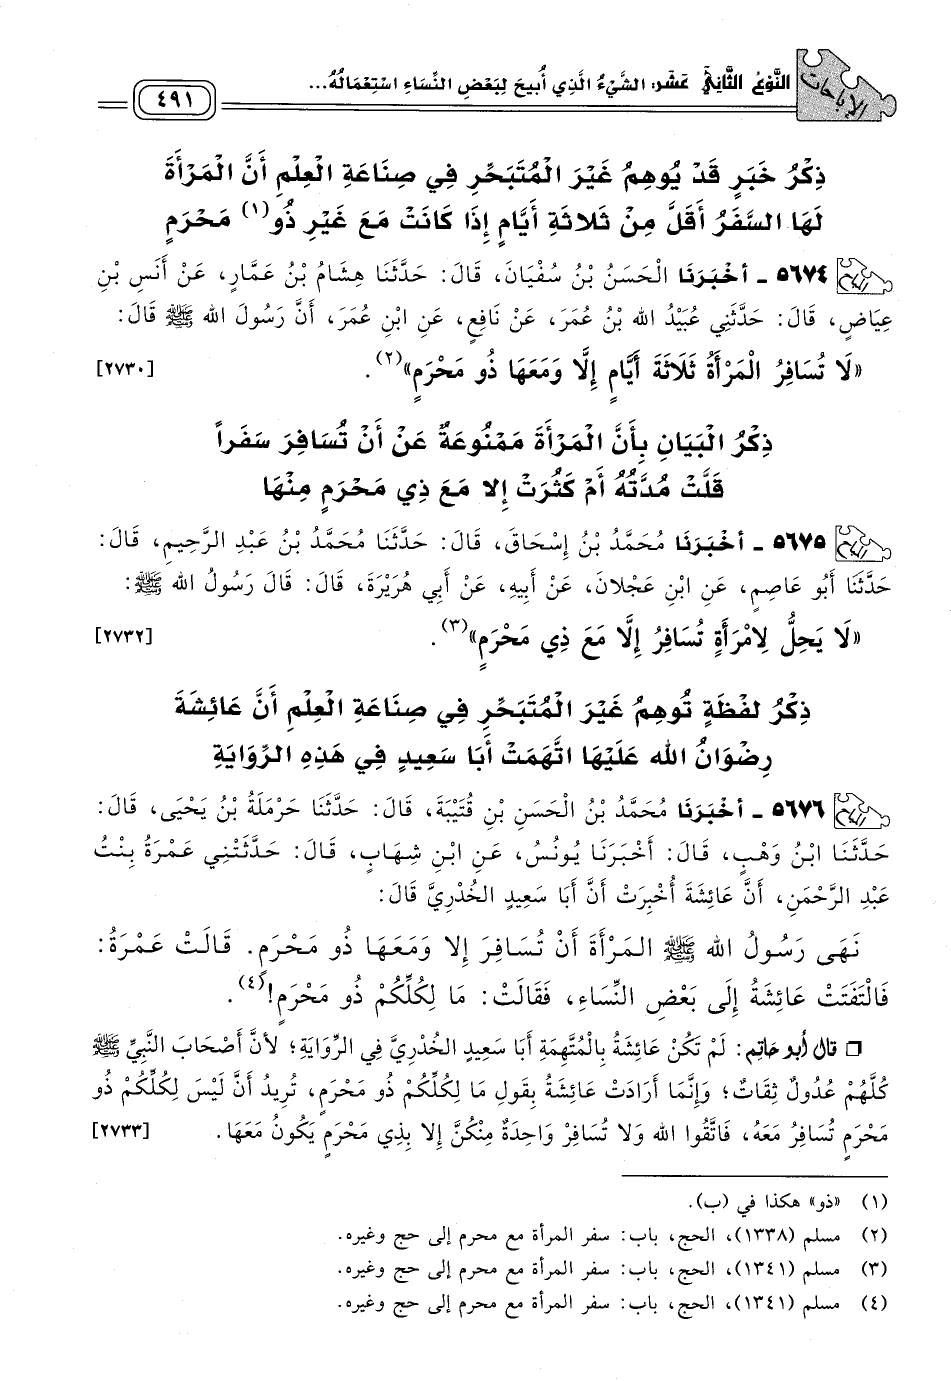 الإباحات
النَّوْعُ الثَّانِي عَشَرَ: الشَّيْءُ الَّذِي أُبيحَ لِبَعْضِ النِّسَاءِ اسْتِعْمَالُهُ...
٤٩١
ذِكْرُ خَبَرٍ قَدْ يُوهِمُ غَيْرَ الْمُتَبَحِّرِ فِي صِنَاعَةِ الْعِلْمِ أَنَّ الْمَرْأَةَ
لَهَا السَّفَرُ أَقَلَّ مِنْ ثَلاثَةِ أَيَّامٍ إِذَا كَانَتْ مَعَ غَيْرِ ذُو(١) مَحْرَمٍ
٥٦٧٤ ـ أَخْبَرَنَا الْحَسَنُ بْنُ سُفْيَانَ، قَالَ: حَدَّثَنَا هِشَامُ بْنُ عَمَّارٍ، عَنْ أَنَسِ بْنِ
عِيَاضٍ، قَالَ: حَدَّثَنِي عُبَيْدُ الله بْنُ عُمَرَ، عَنْ نَافِعٍ، عَنِ ابْنِ عُمَرَ، أَنَّ رَسُولَ الله ﷺ قَالَ:
«لَا تُسَافِرُ الْمَرْأَةُ ثَلَاثَةَ أَيَّامٍ إِلَّا وَمَعَهَا ذُو مَحْرَمٍ»(٢). [٢٧٣٠]
ذِكْرُ الْبَيَانِ بِأَنَّ الْمَرْأَةَ مَمْنُوعَةٌ عَنْ أَنْ تُسَافِرَ سَفَراً
قَلَّتْ مُدَّتُهُ أَمْ كَثُرَتْ إِلا مَعَ ذِي مَحْرَمٍ مِنْهَا
٥٦٧٥ ـ أَخْبَرَنَا مُحَمَّدُ بْنُ إِسْحَاقَ، قَالَ: حَدَّثَنَا مُحَمَّدُ بْنُ عَبْدِ الرَّحِيمِ، قَالَ:
حَدَّثَنَا أَبُو عَاصِمٍ، عَنِ ابْنِ عَجْلانَ، عَنْ أَبِيهِ، عَنْ أَبِي هُرَيْرَةَ، قَالَ: قَالَ رَسُولُ الله ﷺ:
«لَا يَحِلُّ لِامْرَأَةٍ تُسَافِرُ إِلَّا مَعَ ذِي مَحْرَمٍ»(٣). [٢٧٣٢]
ذِكْرُ لَفْظَةٍ تُوهِمُ غَيْرَ الْمُتَبَحِّرِ فِي صِنَاعَةِ الْعِلْمِ أَنَّ عَائِشَةَ
رِضْوَانُ الله عَلَيْهَا اتَّهَمَتْ أَبَا سَعِيدٍ فِي هَذِهِ الرِّوَايَةِ
٥٦٧٦ ـ أَخْبَرَنَا مُحَمَّدُ بْنُ الْحَسَنِ بْنِ قُتَيْبَةَ، قَالَ: حَدَّثَنَا حَرْمَلَةُ بْنُ يَحْيَى، قَالَ:
حَدَّثَنَا ابْنُ وَهْبٍ، قَالَ: أَخْبَرَنَا يُونُسُ، عَنِ ابْنِ شِهَابٍ، قَالَ: حَدَّثَتْنِي عَمْرَةُ بِنْتُ
عَبْدِ الرَّحْمَنِ، أَنَّ عَائِشَةَ أُخْبِرَتْ أَنَّ أَبَا سَعِيدٍ الخُدْرِيَّ قَالَ:
نَهَى رَسُولُ الله ﷺ المَرْأَةَ أَنْ تُسَافِرَ إِلا وَمَعَهَا ذُو مَحْرَمٍ. قَالَتْ عَمْرَةُ:
فَالْتَفَتَتْ عَائِشَةُ إِلَى بَعْضِ النِّسَاءِ، فَقَالَتْ: مَا لِكُلِّكُمْ ذُو مَحْرَمٍ!(٤).
❒ قال أبو حاتم: لَمْ تَكُنْ عَائِشَةُ بِالْمُتَّهِمَةِ أَبَا سَعِيدٍ الخُدْرِيَّ فِي الرِّوَايَةِ؛ لأنَّ أَصْحَابَ النَّبِيِّ ﷺ
كُلَّهُمْ عُدُولٌ ثِقَاتٌ؛ وَإِنَّمَا أَرَادَتْ عَائِشَةُ بِقَولِ مَا لِكُلِّكُمْ ذُو مَحْرَمٍ، تُرِيدُ أَنَّ لَيْسَ لِكُلِّكُمْ ذُو
مَحْرَمٍ تُسَافِرُ مَعَهُ، فَاتَّقُوا الله وَلا تُسَافِرْ وَاحِدَةٌ مِنْكُنَّ إِلا بِذِي مَحْرَمٍ يَكُونُ مَعَهَا. [٢٧٣٣]
(١) «ذو» هكذا في (ب).
(٢) مسلم (١٣٣٨)، الحج، باب: سفر المرأة مع محرم إلى حج وغيره.
(٣) مسلم (١٣٤١)، الحج، باب: سفر المرأة مع محرم إلى حج وغيره.
(٤) مسلم (١٣٤١)، الحج، باب: سفر المرأة مع محرم إلى حج وغيره.